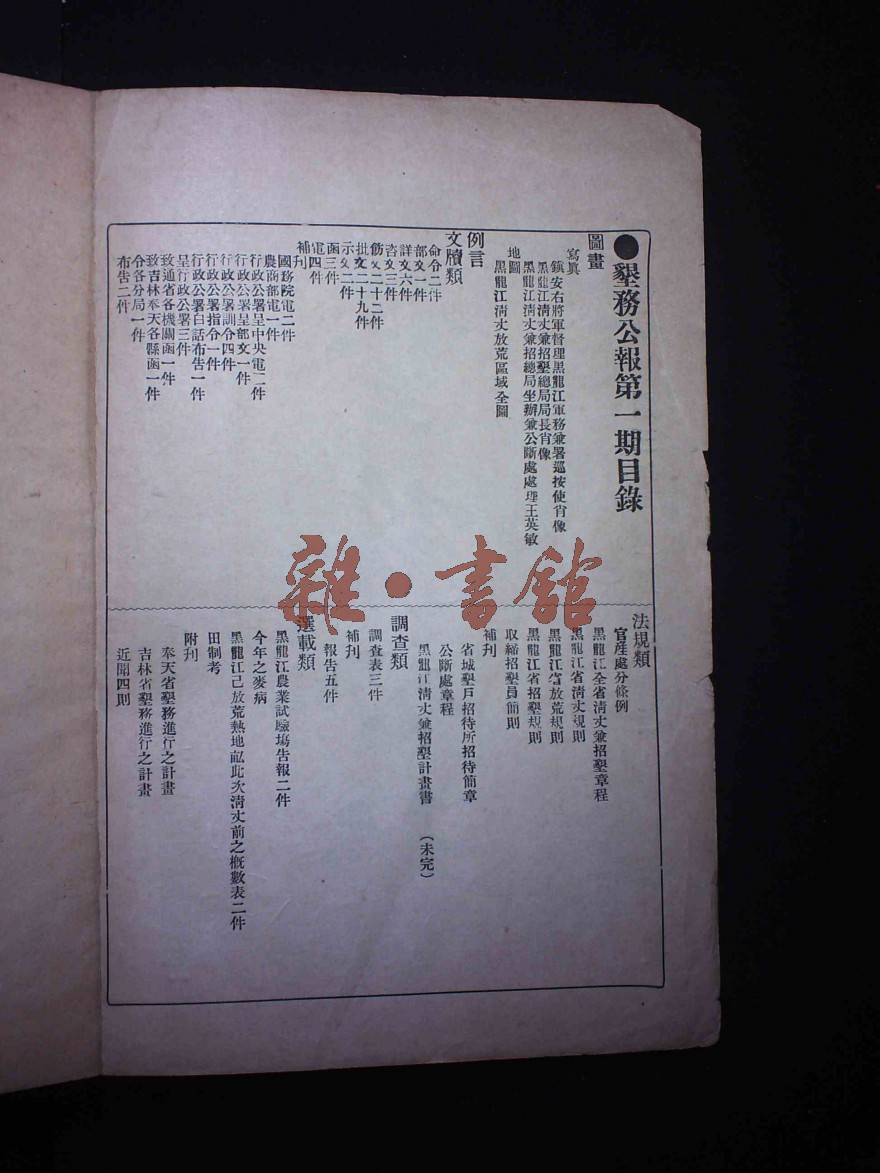 ●墾務公報第一期目錄
圖畫
寫眞
鎭安右將軍督理黑龍江軍務兼署巡按使肖像
黑龍江淸丈兼招墾總局局長肖像
黑龍江淸丈兼招總局坐辦兼公斷處處理王英敏
地圖
黑龍江淸丈放荒區域全圖
例言
文牘類
命令二件
部文一件
詳文六件
咨文三件
飭文二十二件
批文二十九件
示文二件
函三件
電四件
補刋
國務院電二件
農商部電一件
行政公署呈中央電二件
行政公署呈部文一件
行政公署訓令四件
行政公署指令一件
行政公署白話布告一件
呈行政公署三件
致通省各機關函一件
致吉林奉天各縣函一件
令各分局一件
布告二件
法規類
官産處分條例
黑龍江全省淸丈兼招墾章程
黑龍江省淸丈規則
黑龍江省放荒規則
黑龍江省招墾規則
取締招墾員簡則
補刋
省城墾戶招待所招待簡章
公斷處章程
黑龍江淸丈兼招墾計畫書　(未完)
調查類
調查表三件
補刋
報告五件
選載類
黑龍江農業試驗場告報二件
今年之麥病
黑龍江已放荒熟地畝此次淸丈前之槪數表二件
田制考
附刋
奉天省墾務進行之計畫
吉林省墾務進行之計畫
近聞四則
雜·書館